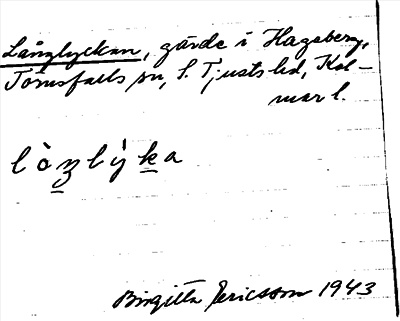 Långlyckan, gärde i Hageberg,
Törnsfalls sn, S. Tjusts hd, Kal-
mar l.
lòʒlỳka
Birgitta Ericsson 1943